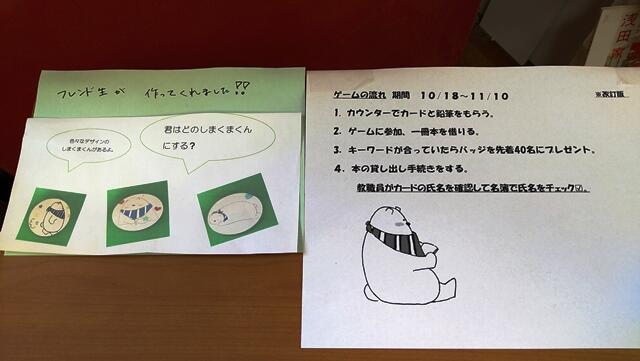 フレンド生が 作ってくれました!!
色々なデザインの
しまくまくんがあるよ。
君はどのしまくまくん
にする？
ゲームの流れ 期間 10/18～11/10 ※改訂版
1. カウンターでカードと鉛筆をもらう。
2. ゲームに参加、一冊本を借りる。
3. キーワードが合っていたらバッジを先着40名にプレゼント。
4. 本の貸し出し手続きをする。
教職員がカードの氏名を確認して名簿で氏名をチェック☑。
浅田